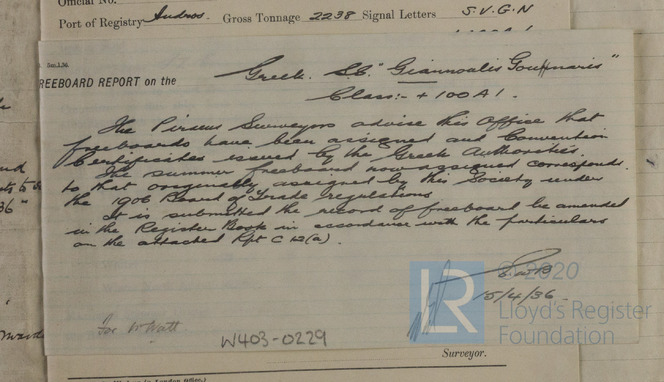 Official No.
Port of Registry Andros. Gross Tonnage 2238 Signal Letters S.V.G.N
5m.1.36.
REEBOARD REPORT on the Greek. SS. "Giannoulis Gounaris"
Class:- + 100A1.
The Piraeus Surveyors advise this Office that
freeboards have been assigned and Convention
Certificates issued by the Greek Authorities.
The summer freeboard now assigned corresponds
to that originally assigned by this Society under
the 1906 Board of Trade regulations
It is submitted the record of freeboard be amended
in the Register Book in accordance with the particulars
on the attached Rpt C 12(a).
15/4/36
© 2020
LR Lloyd's Register
Foundation
For Mr Watt
W403-0229
Surveyor.